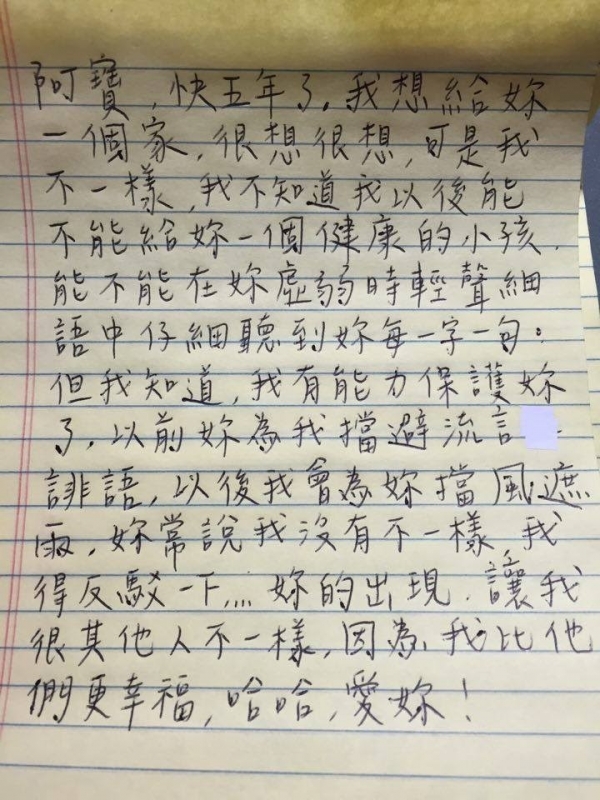 阿寶，快五年了。我想給妳
一個家，很想很想，可是我
不一樣，我不知道我以後能
不能給妳一個健康的小孩，
能不能在妳虛弱時輕聲細
語中仔細聽到妳每一字一句。
但我知道，我有能力保護妳
了，以前妳為我擋避流言
誹語，以後我會為妳擋風遮
雨，妳常說我沒有不一樣，我
得反駁一下…. 妳的出現，讓我
很其他人不一樣，因為，我比他
們更幸福，哈哈，愛妳！